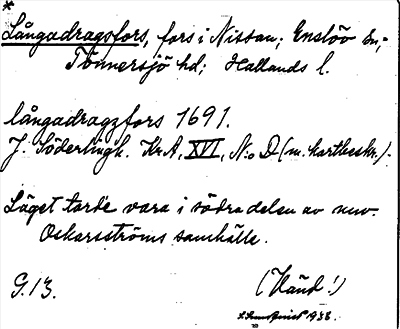 *
Långadragsfors, fors i Nissan; Enslöv sn;
Tönnersjö hd; Hallands l.
långadragzfors 1691.
J. Söderlingk. Kr A, XVI, N:o D (m. kartbeskr.).
Läget torde vara i södra delen av nuv.
Oskarsströms samhälle.
G. 13.
(Vänd!)
1933